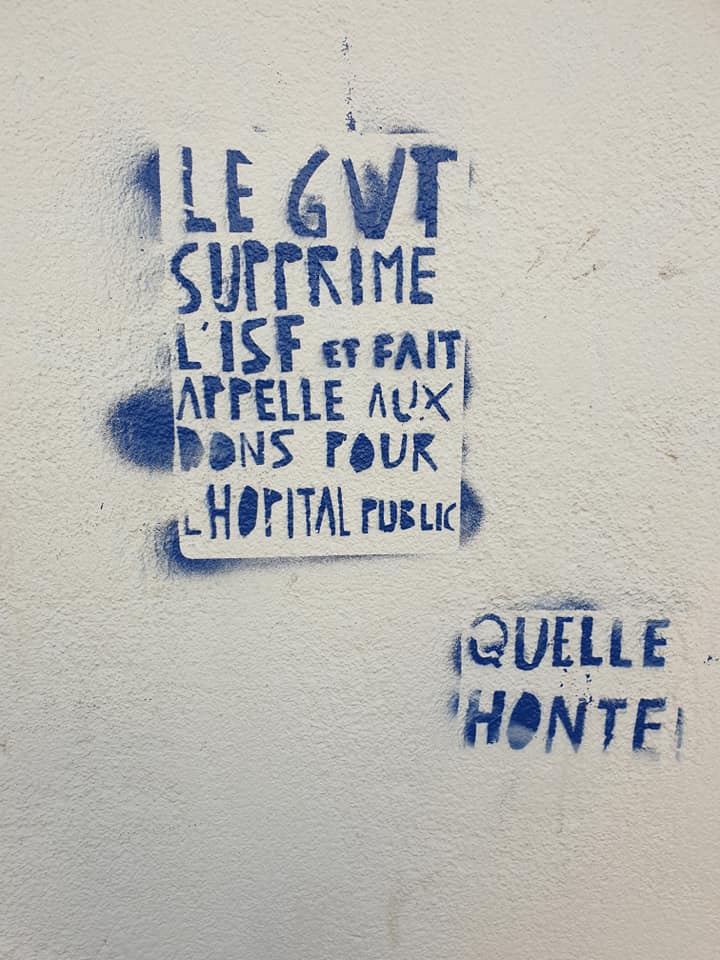 LE GVT
SUPPRIME
L'ISF ET FAIT
APPELLE AUX
DONS POUR
L HOPITAL PUBLIC
QUELLE
HONTE!